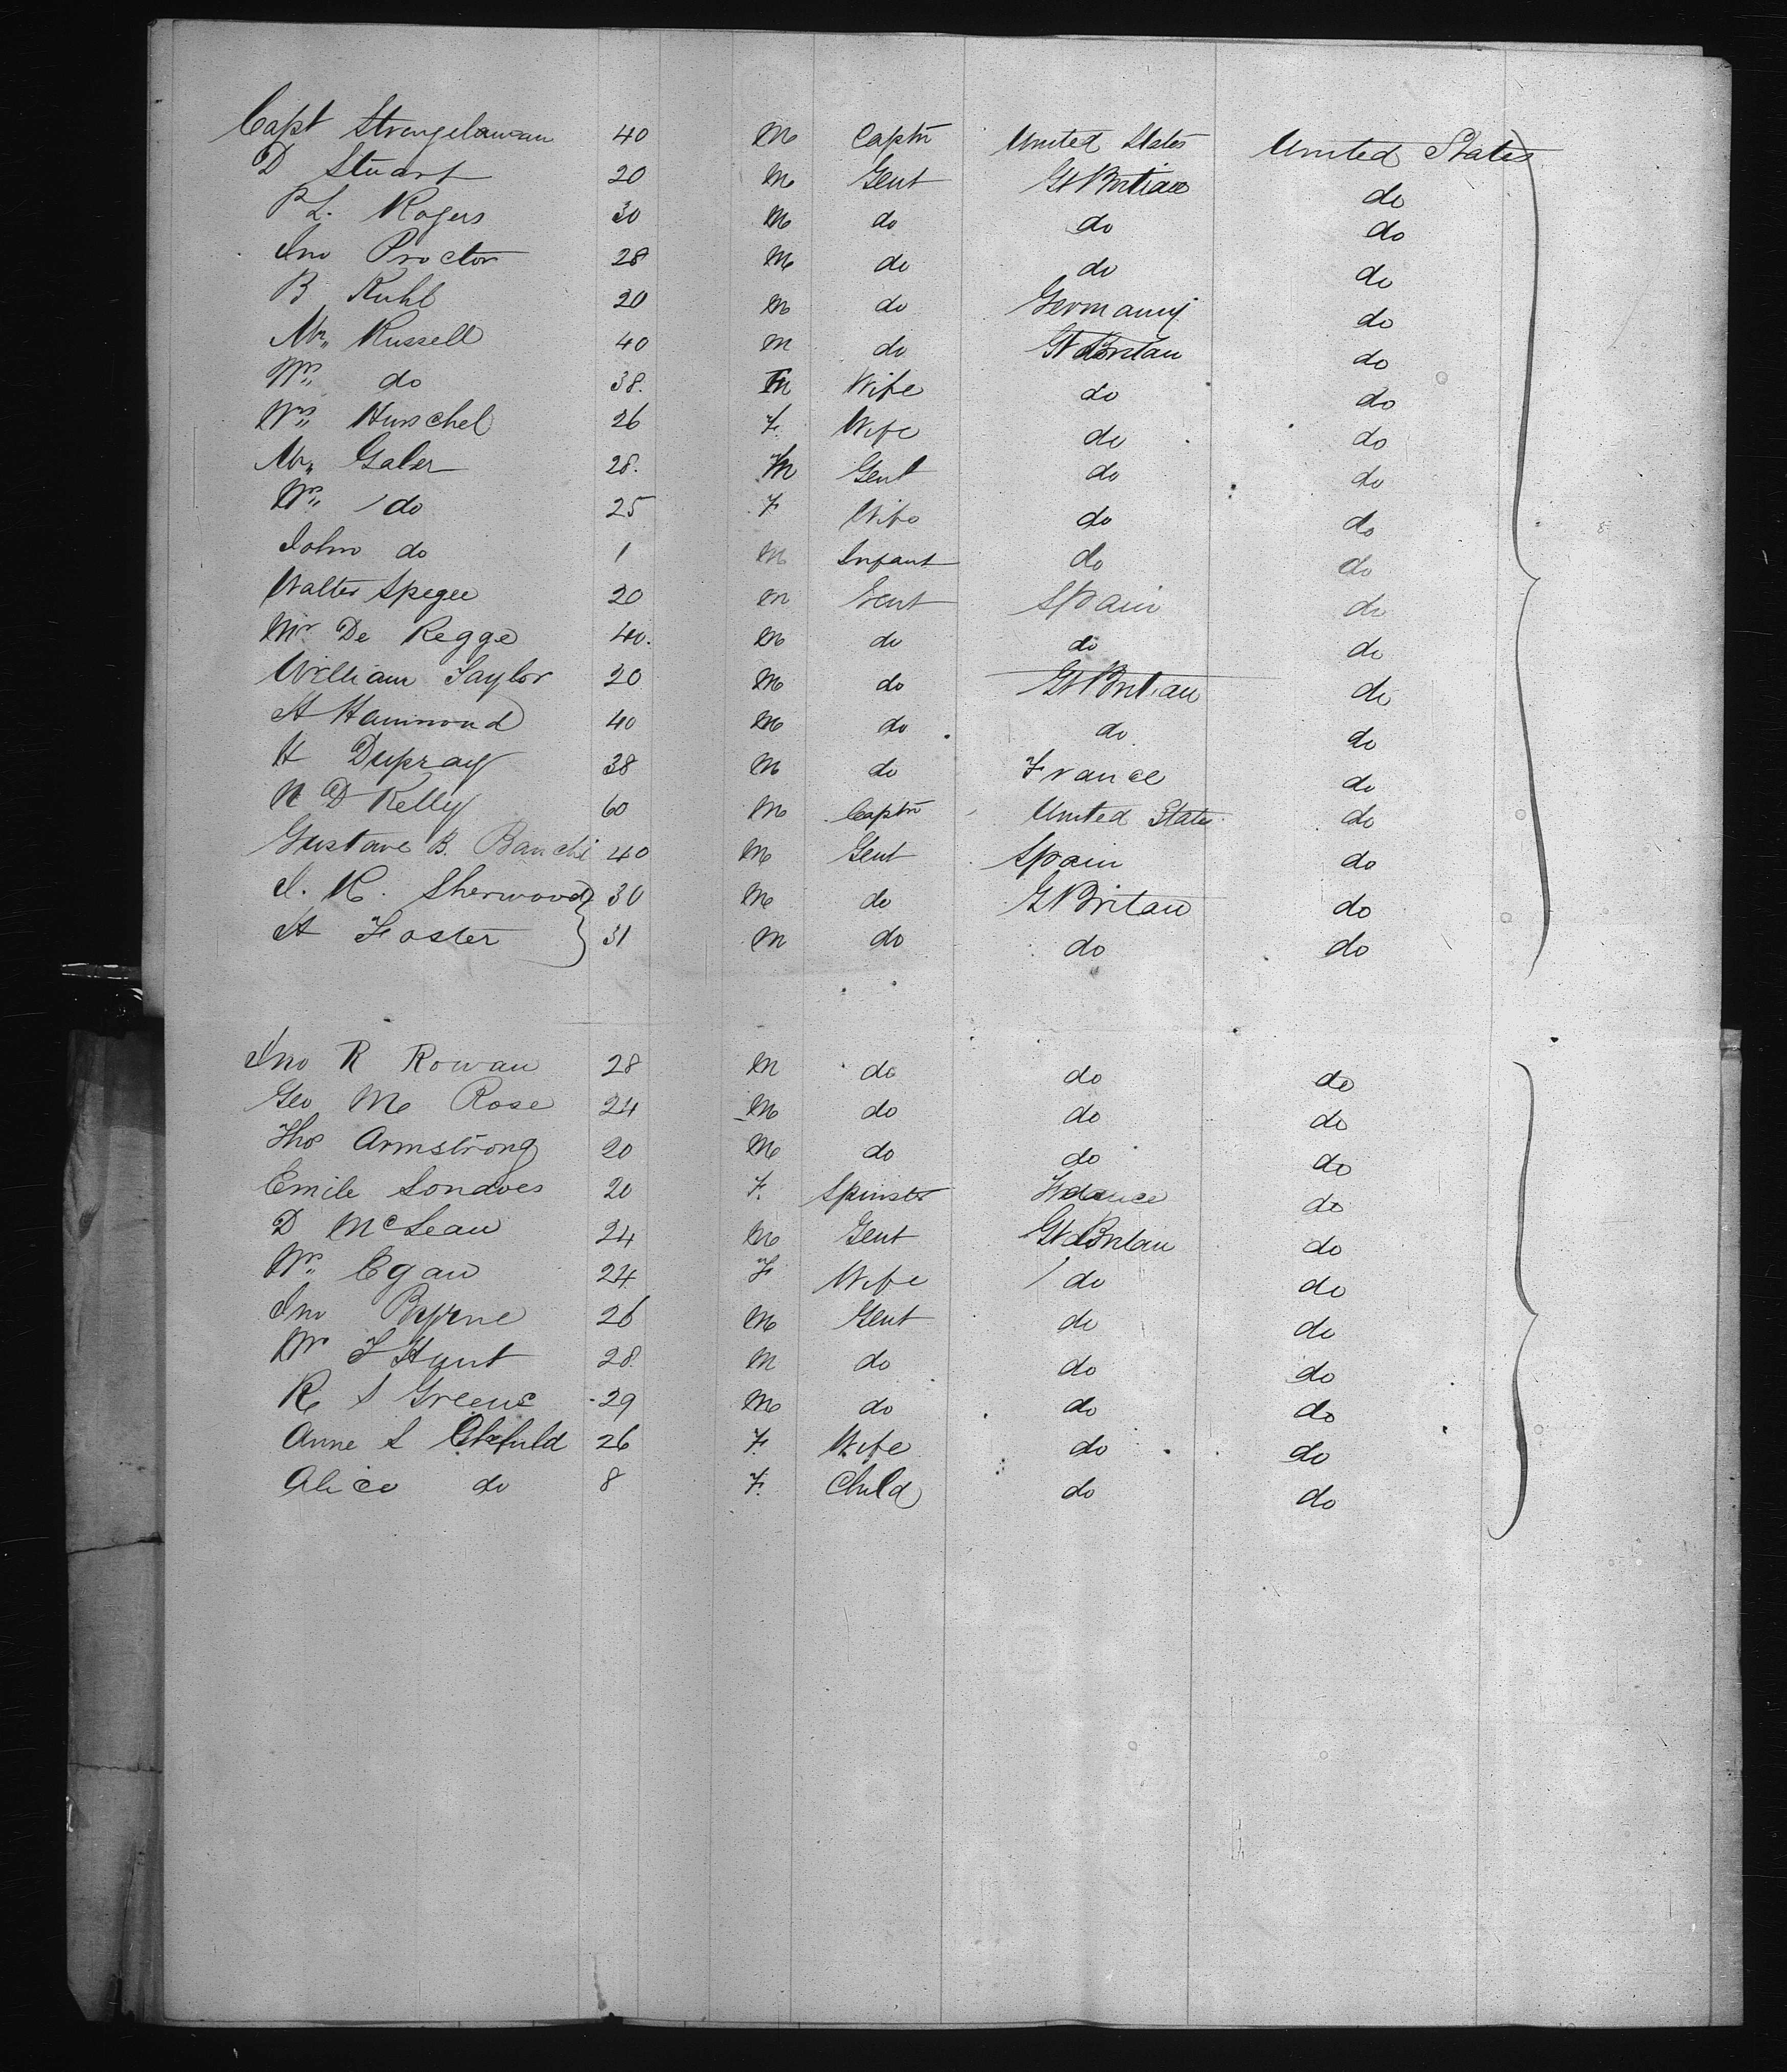 Capt Strengelawan 40 M Captn United States United States
D Stuart 20 M Gent Gt Britian do
P L. Rogers 30 M do do do
Jno Proctor 28 M do do do
B Kuhl 20 M do Germany do
Mr Russell 40 M do Gt Britan do
Mrs do 38. Wife do do
Mrs Hurschel 26 F. Wife do do
Mr Gaber 28. M Gent do do
Mrs do 25 F Wife do do
John do 1 M Infant do do
Walter Spegee 20 M Gent Spain do
Mr De Regge 40. M do do do
William Taylor 20 M do Gt Britian do
A Hammond 40 M do do do
H Dupray 38 M do France do
N D Kelly 60 M Captn United States do
Gustave B. Banchi 40 M Gent Spain do
J. H. Sherwood 30 M do Gt Britan do
A Foster 31 M do do do
Jno R Rowan 28 M do do do
Geo M Rose 24 M do do do
Thos Armstrong 20 M do do do
Emile Sondoes 20 F. Spinstr France do
D McLean 24 M Gent Gt Britan do
Mrs Egan 24 F Wife do do
Jno Byrne 26 M Gent do do
Mr F Hunt 28. M do do do
R S Greene 29 M do do do
Anne L 26 F. Wife do do
Alice do 8 F. Child do do